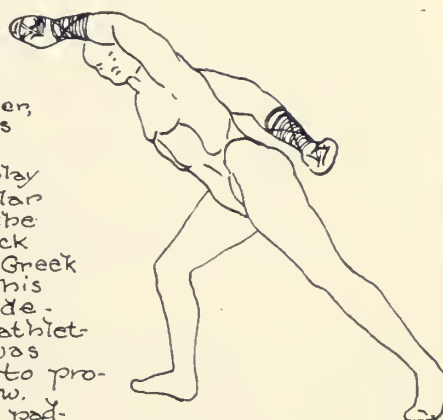 er,
s
lay
lar
the
ck
Greek
his
de-
athlet-
was
to pro-
w.
pad-